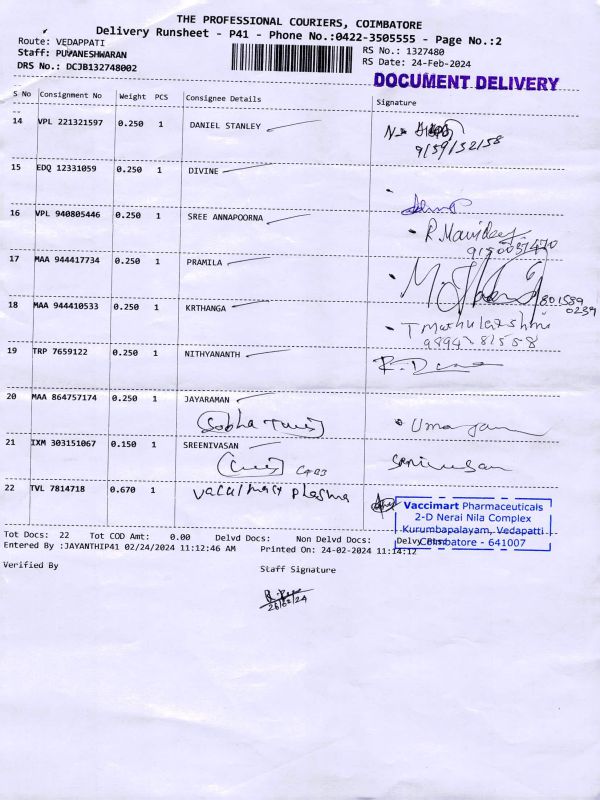 THE PROFESSIONAL COURIERS, COIMBATORE
Delivery Runsheet - P41 - Phone No.:0422-3505555 - Page No.:2
Route: VEDAPPATI
RS No.: 1327480
Staff: PUVANESHWARAN
RS Date: 24-Feb-2024
DRS No.: DCJB132748002
DOCUMENT DELIVERY
S No Consignment No Weight PCS Consignee Details Signature
14 VPL 221321597 0.250 1 DANIEL STANLEY
9159152158
15 EDQ 12331059 0.250 1 DIVINE
16 VPL 940805446 0.250 1 SREE ANNAPOORNA
R.
17 MAA 944417734 0.250 1 PRAMILA
18 MAA 944410533 0.250 1 KRTHANGA
T Muthulakshmi
19 TRP 7659122 0.250 1 NITHYANANTH
20 MAA 864757174 0.250 1 JAYARAMAN
Sobha
21 IXM 303151067 0.150 1 SREENIVASAN
22 TVL 7814718 0.670 1
plasma
Vaccimart Pharmaceuticals
2-D Nerai Nila Complex
Kurumbapalayam, Vedapatti
Coimbatore - 641007
Tot Docs: 22 Tot COD Amt: 0.00 Delvd Docs: Non Delvd Docs:
Entered By :JAYANTHIP41 02/24/2024 11:12:46 AM Printed On: 24-02-2024 11:14:12
Verified By Staff Signature
26/02/24